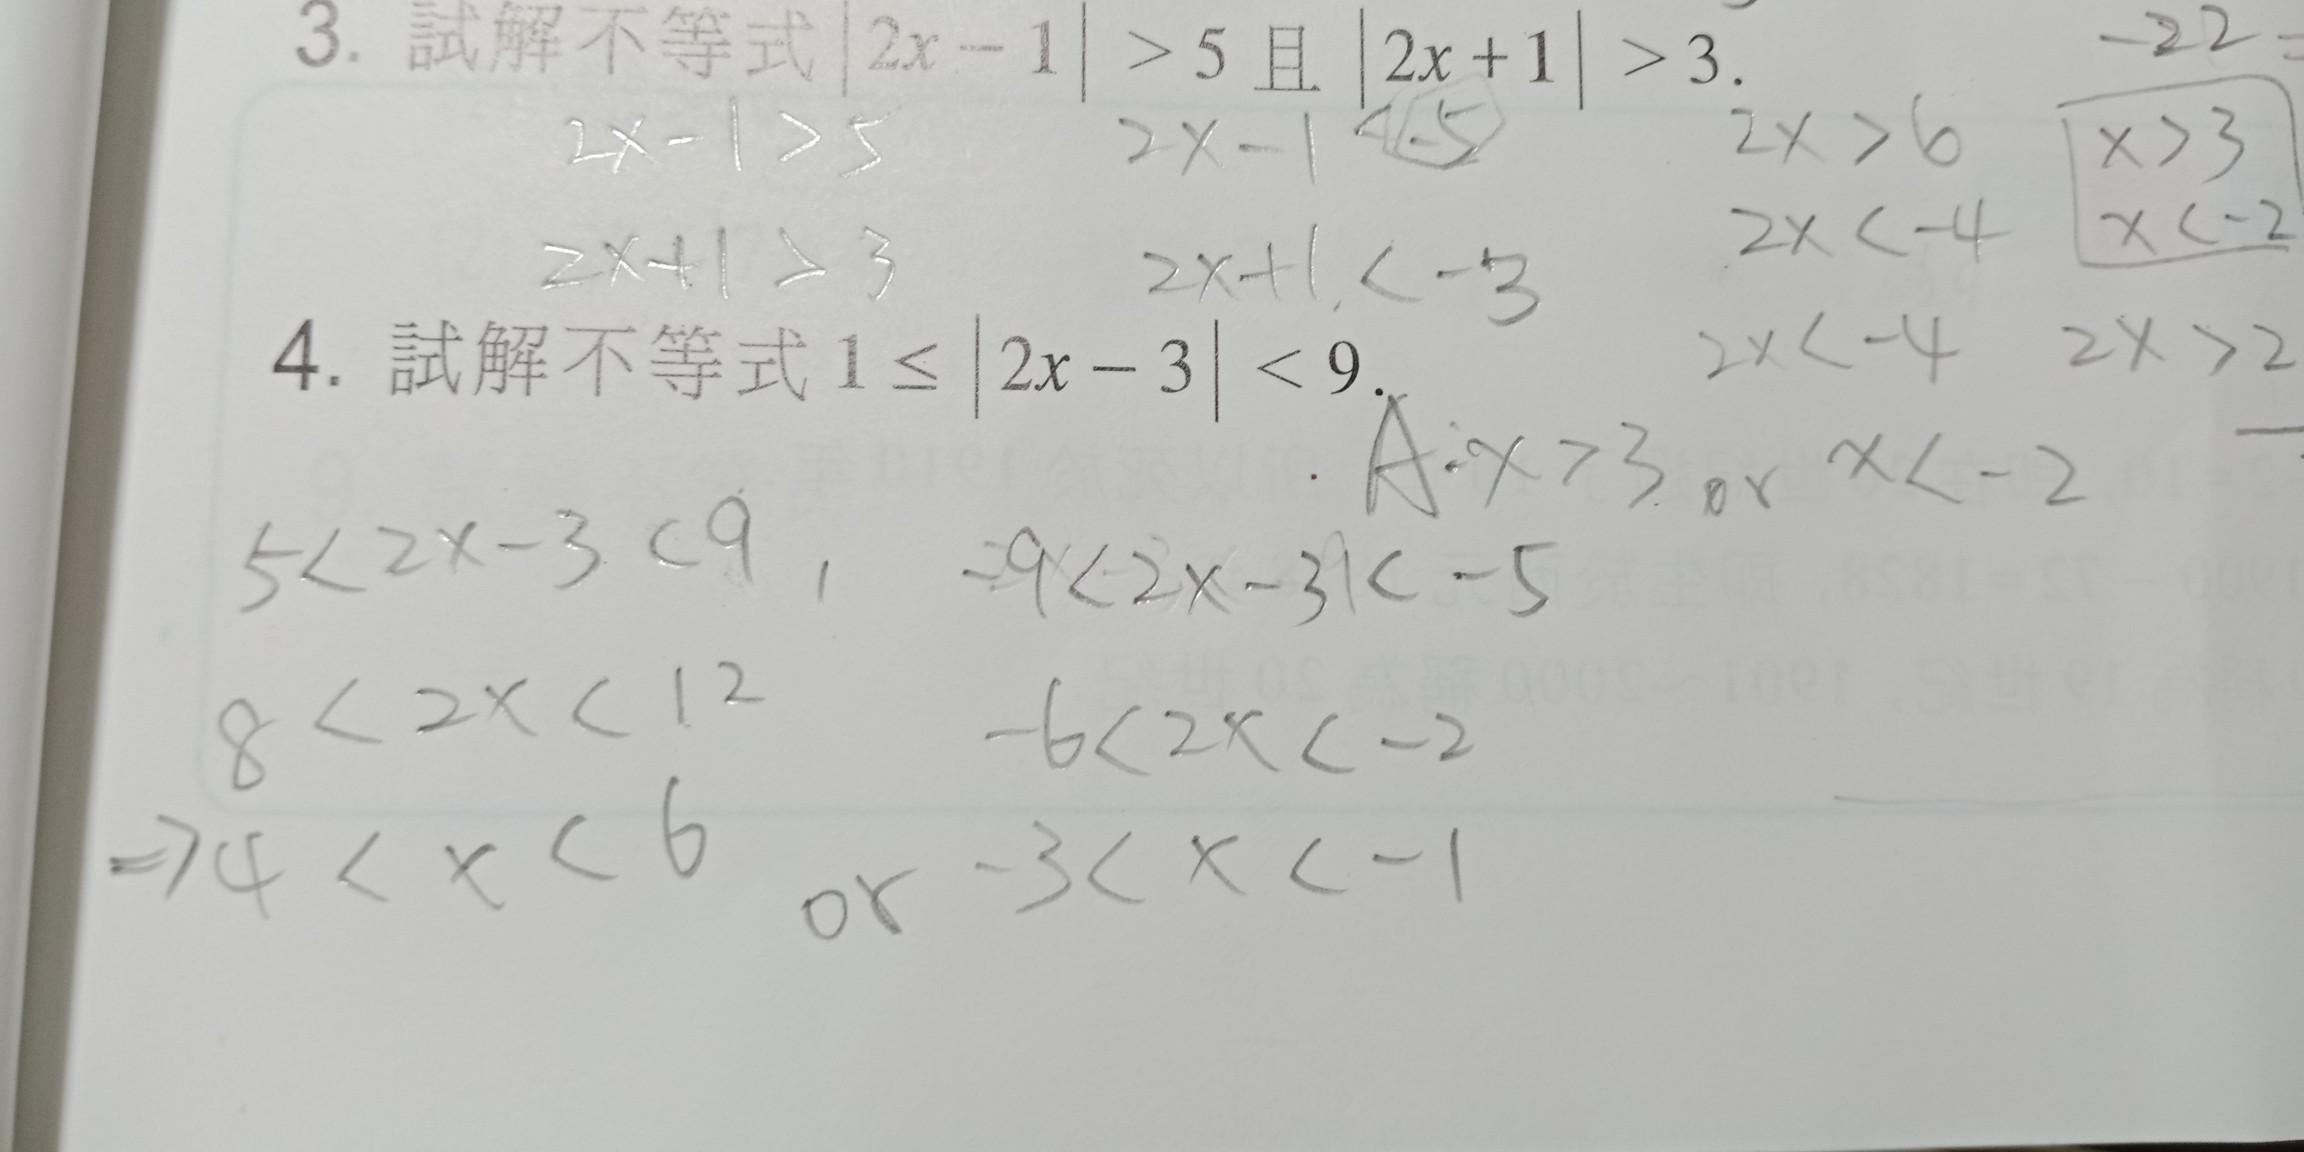 -22=
3. 試解不等式|2x-1|>5 且 |2x+1|>3.
2x-1>5 2x-1<-5 2x>6 x>3
2x<-4 x<-2
2x+1>3 2x+1<-3
2x<-4 2x>2
4. 試解不等式 1≤|2x-3|<9.
A:x>3 or x<-2
5<2x-3<9, -9<2x-3<-5
8<2x<12 -6<2x<-2
⇒4<x<6 or -3<x<-1